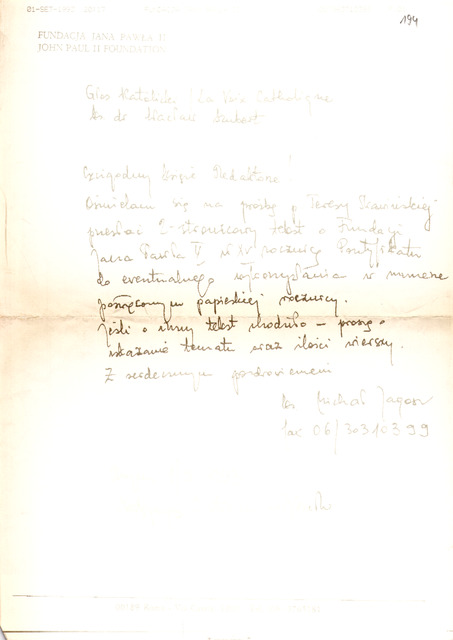 194
FUNDACJA JANA PAWŁA II
JOHN PAUL II FOUNDATION
Głos Katolicki / La Voix Catholique
ks dr Wacław Szubert
Czcigodny Księże Redaktorze!
Ośmielam się na prośbę p. Teresy
przesłać 2-stronicowy tekst o Fundacji
Jana Pawła II w XV rocznicę Pontyfikatu
do ewentualnego wykorzystania w numerze
poświęconym papieskiej rocznicy.
Jeśli o inny tekst chodziło – proszę o
wskazanie tematu oraz ilości wierszy.
Z serdecznym pozdrowieniem
ks Michał Jagosz
fax 06/3031 03 99